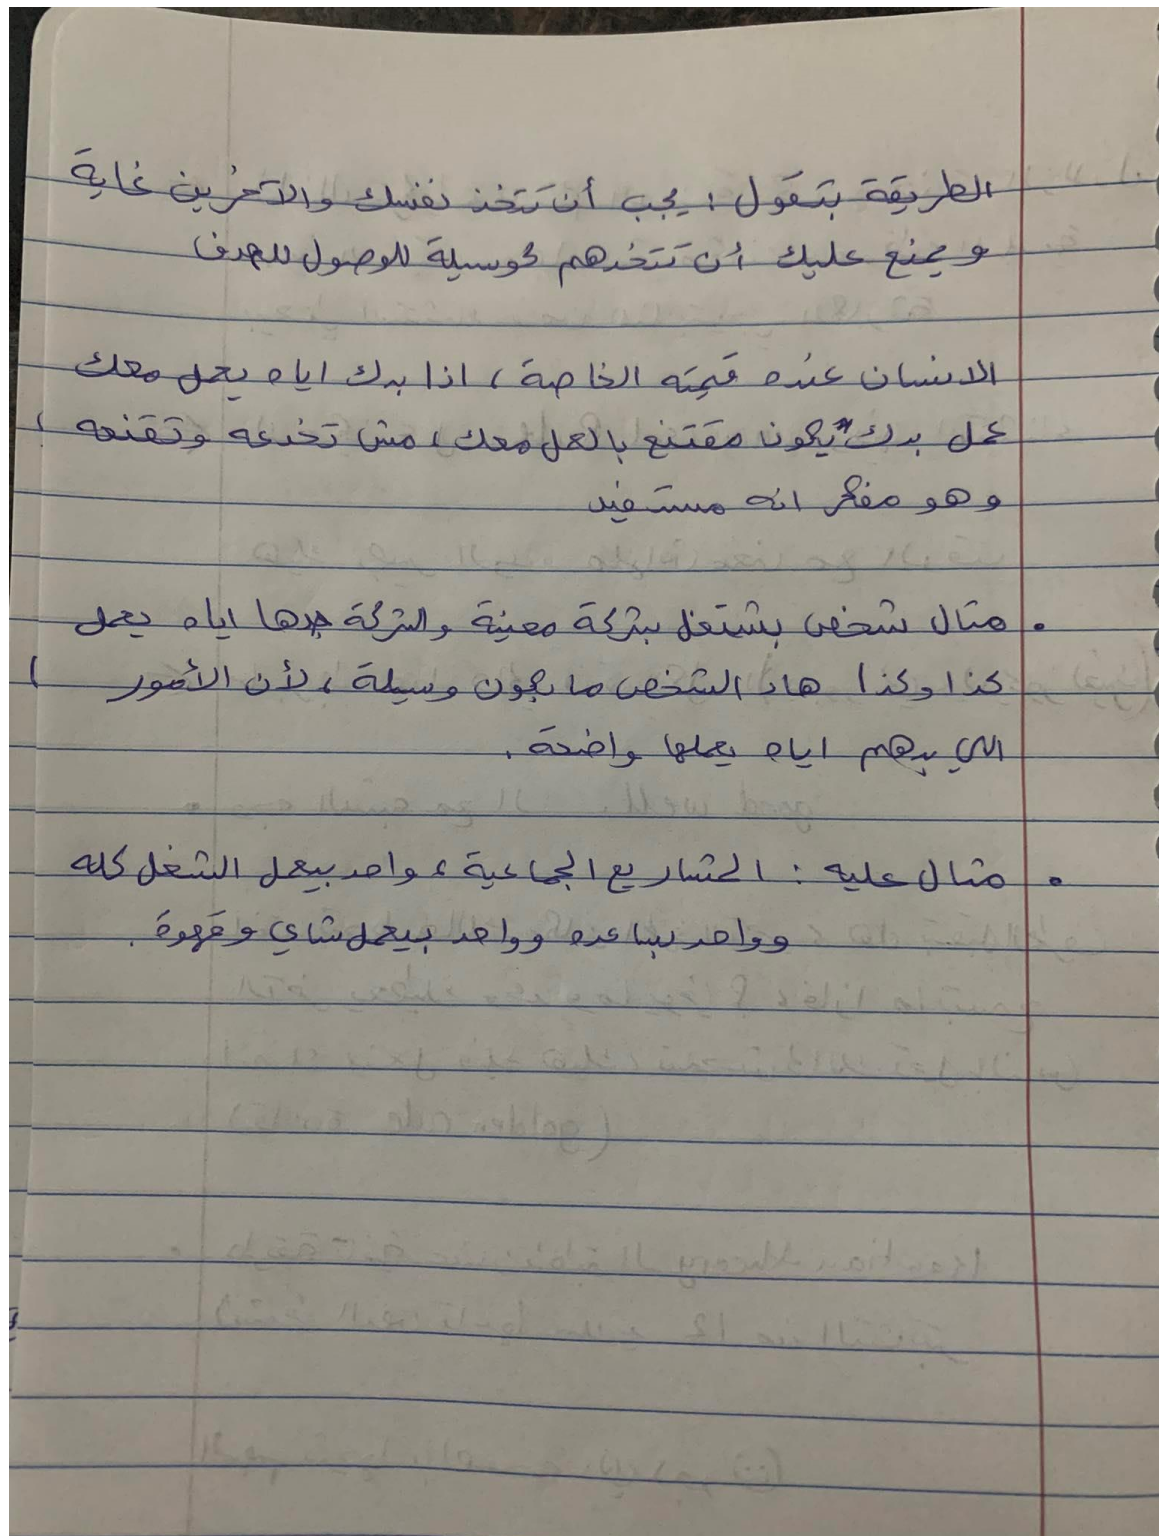 الطريقة بتقول : يجب أن تتخذ نفسك والآخرين غاية
و يمنع عليك أن تتخذهم كوسيلة للوصول للهدف
الانسان عنده قيمته الخاصة ، اذا بدك اياه يعمل معك
عمل بدك يكون مقتنع بالعمل معك ، مش تخدعه وتقنعه ،
وهو مفكر انه مستفيد
• مثال شخص بشتغل بشركة معينة والشركة بدها اياه يعمل
كذا وكذا هاد الشخص ما بكون وسيلة ، لأن الأمور
اللي بدهم اياه يعملها واضحة .
• مثال عليه : المشاريع الجماعية ، واحد بيعمل الشغل كله
وواحد بساعده وواحد بيعمل شاي وقهوة .